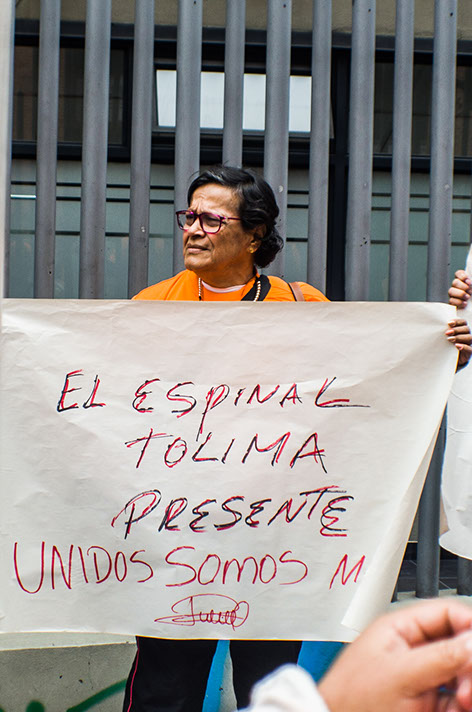 EL ESPINAL
TOLIMA
PRESENTE
UNIDOS SOMOS M